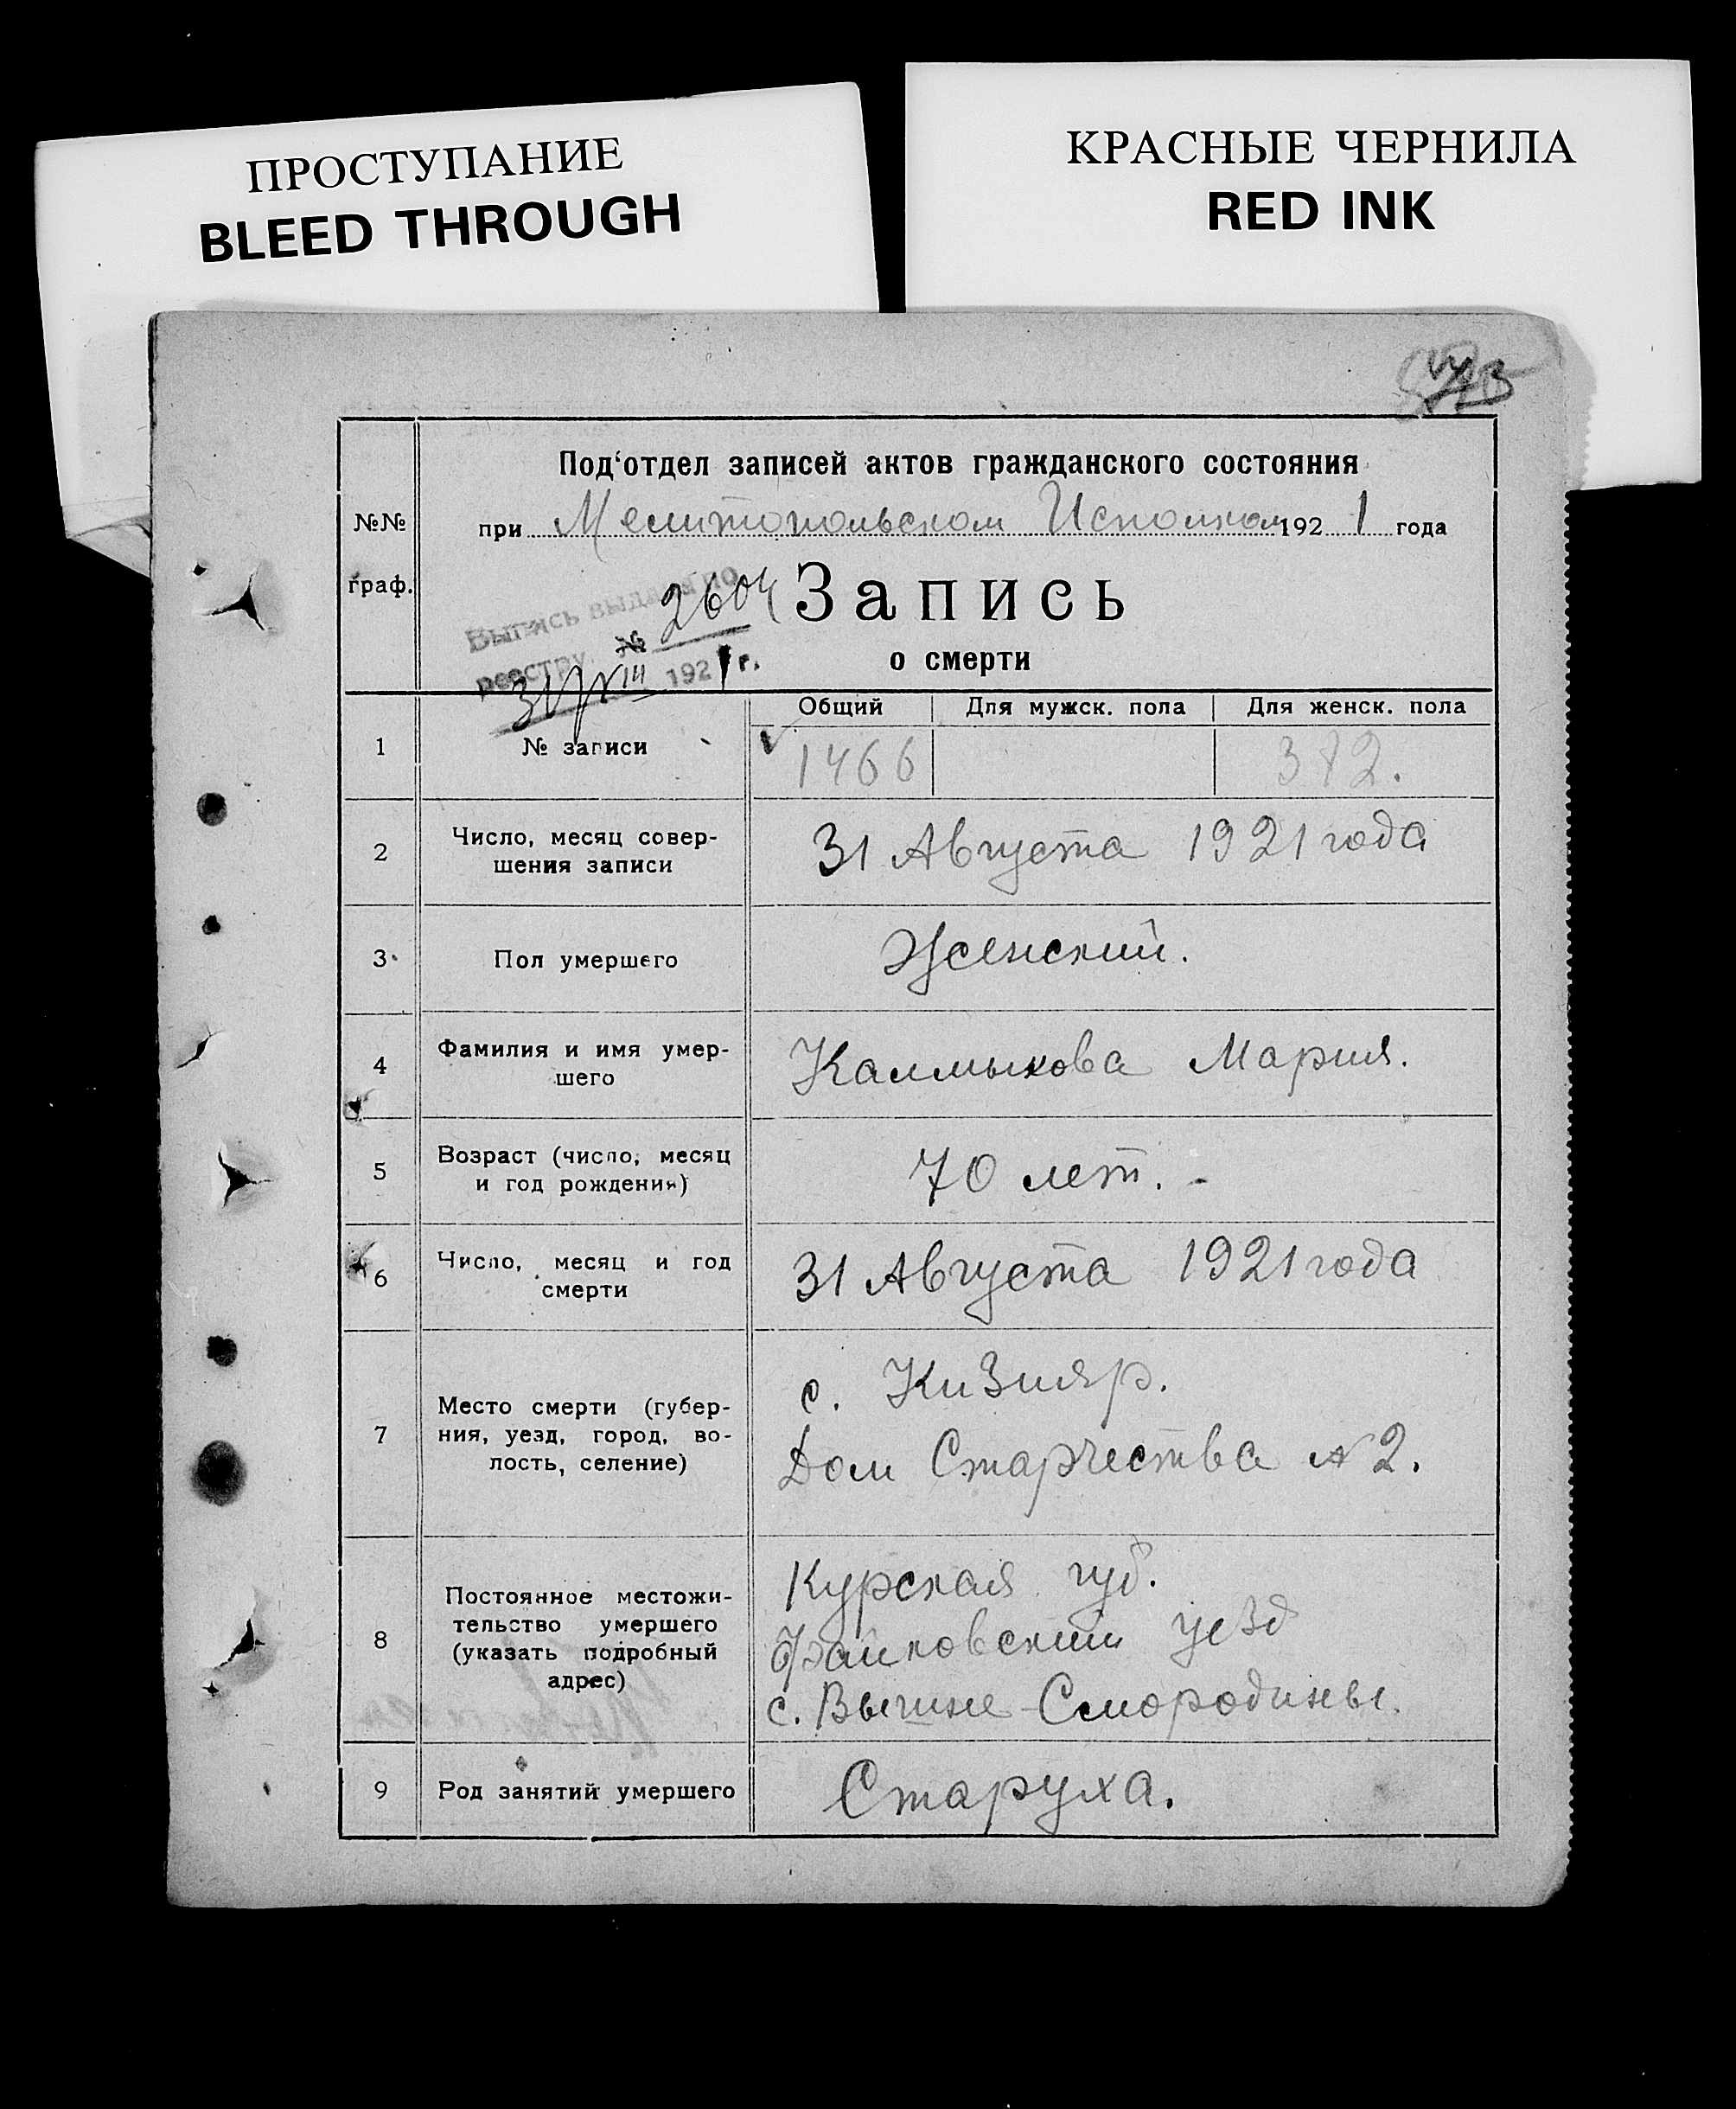 ПРОСТУПАНИЕ
BLEED THROUGH
КРАСНЫЕ ЧЕРНИЛА
RED INK
Под‘отдел записей актов гражданского состояния
№№ граф.
при Мелитопольском Исполком 1921 года
Запись
о смерти
Выпись выдана по
реестру № 2604
31/VIII 1921 г.
Общий Для мужск. пола Для женск. пола
1 № записи 1466 382.
2 Число, месяц совер-
шения записи
31 Августа 1921 года
3 Пол умершего Женский.
4 Фамилия и имя умер-
шего
Калмыкова Мария.
5 Возраст (число, месяц
и год рождения)
70 лет. -
6 Число, месяц и год
смерти
31 Августа 1921 года
7 Место смерти (губер-
ния, уезд, город, во-
лость, селение)
с. Кизияр.
Дом Старчества № 2.
8 Постоянное местожи-
тельство умершего
(указать подробный
адрес)
Курская губ.
уезд
с. Вышне-Смородины.
9 Род занятий умершего Старуха.